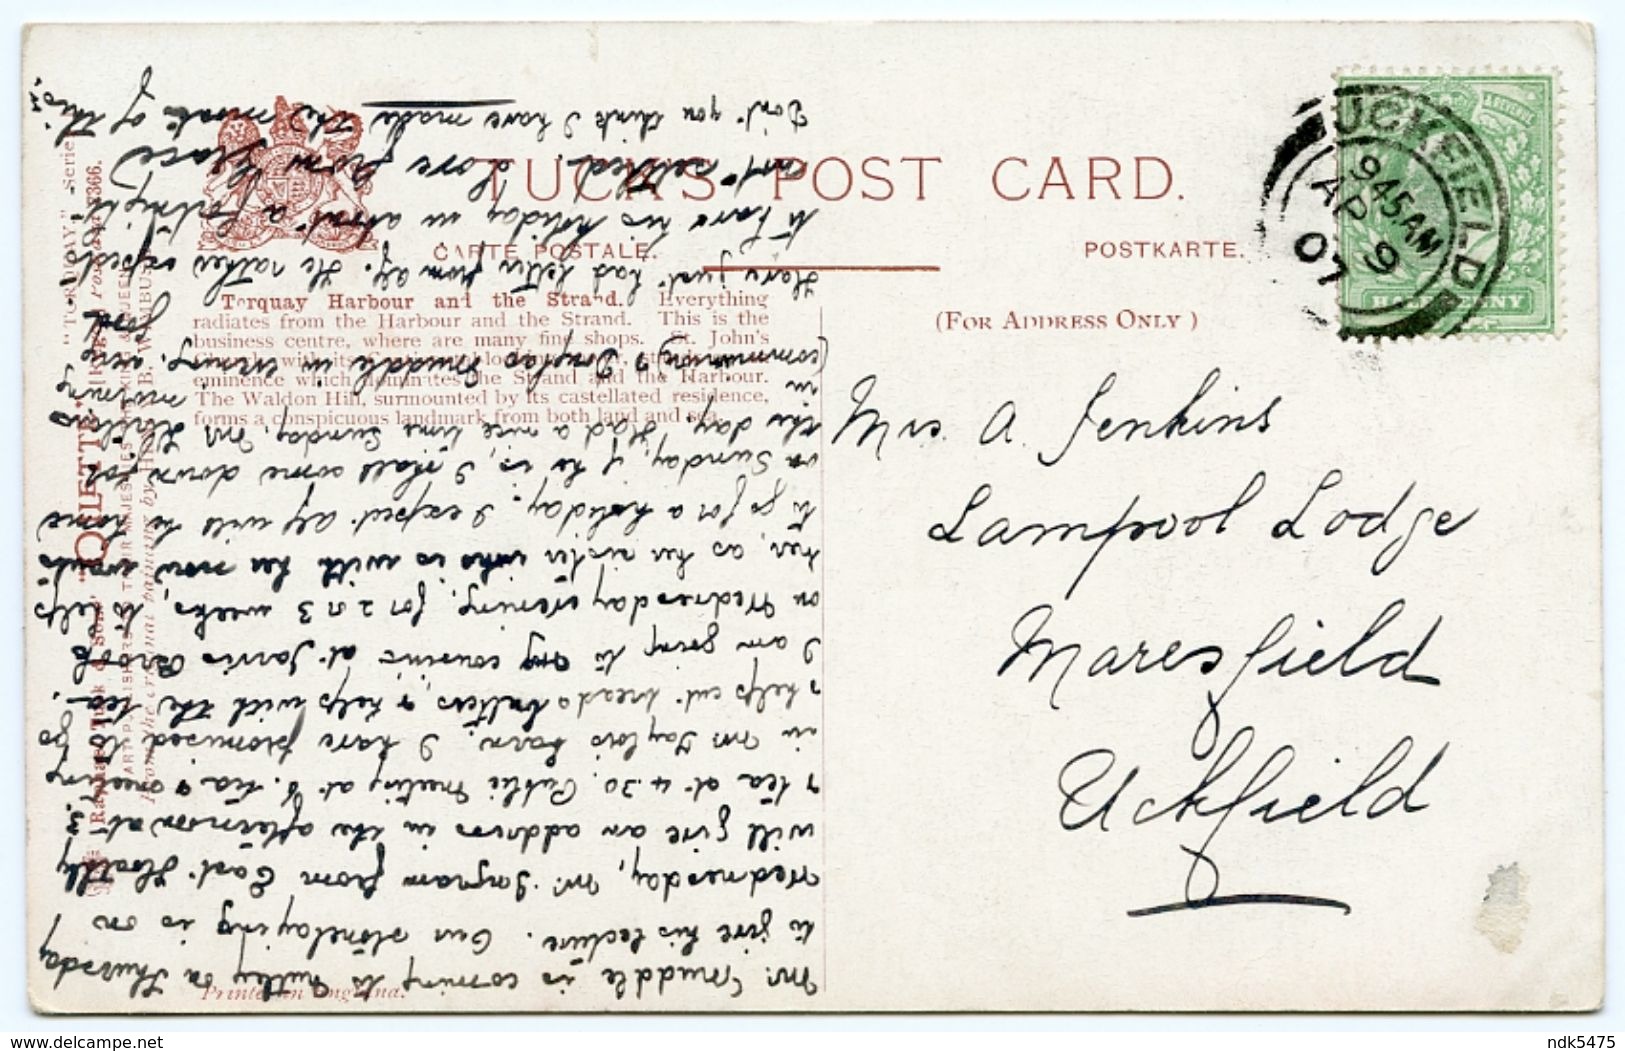 TUCK'S POST CARD.
CARTE POSTALE. POSTKARTE.
(FOR ADDRESS ONLY)
Torquay Harbour and the Strand. Everything
radiates from the Harbour and the Strand. This is the
business centre, where are many fine shops. St. John's
eminence which dominates the Strand and the Harbour.
The Waldon Hill, surmounted by its castellated residence,
forms a conspicuous landmark from both land and sea.
"TORQUAY" Series
"OILETTE"
Raphael Tuck & Sons'
Printed in England.
UCKFIELD
945AM
AP 9
07
HALFPENNY
Mrs. A. Jenkins
Lampool Lodge
Maresfield
Uckfield
Mr. Muddle is coming to Nutley on Thursday
to give his lecture. Our stonelaying is on
Wednesday, Mr. Ingram from East Hoathly
will give an address in the afternoon at 3.
& tea at 4.30. Public Meeting at 6. tea & meeting
in Mr Taylors barn. I have promised to go
& help cut bread & butter, & help with the tea.
I am going to my cousins at Jarvis Brook
on Wednesday evening, for 2 or 3 weeks, to help
her, as her sister who is with her now wants
to go for a holiday. I expect Alf will be home
on Sunday, if he is, I shall come down for
the day. Had a nice time Sunday. Mr
in morning
(communion) & Douglas Muddle in evening.
Have just had letter from Alf. He rather expects
to have his holiday in about a fortnight
Love from Grace
Don't you think I have made the most of this.
ndk5475